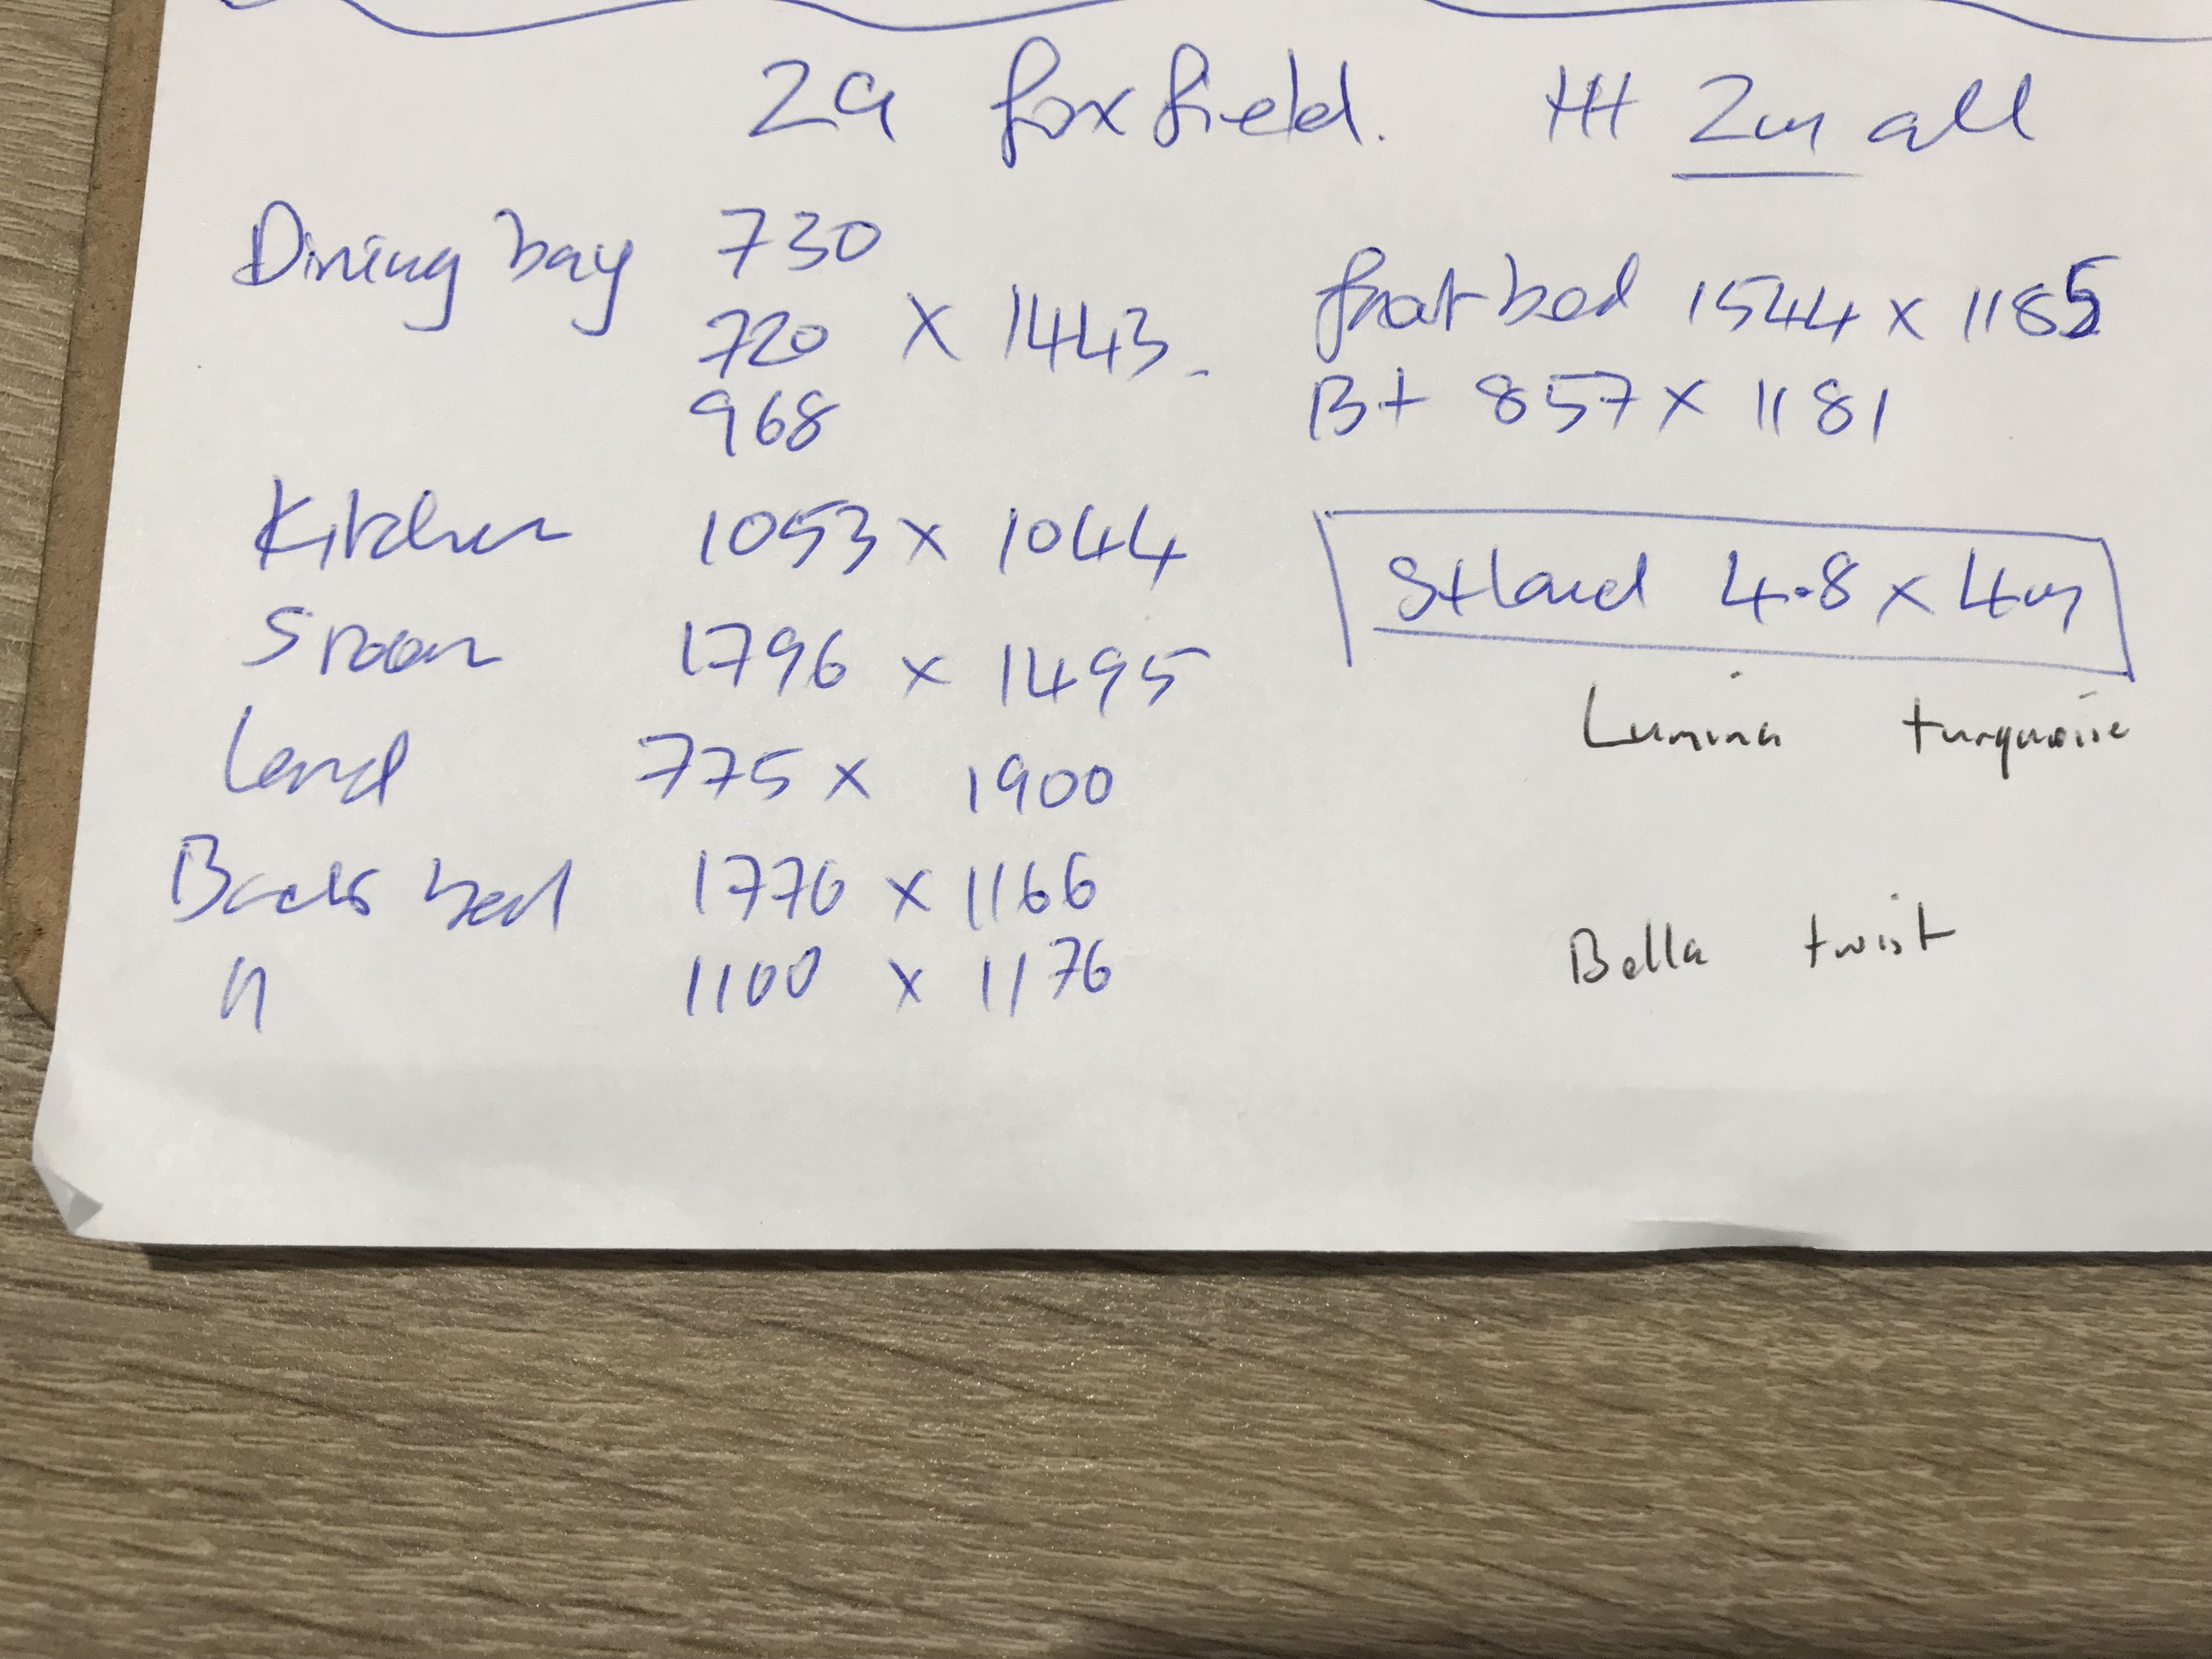 2a foxfield. HH 2m all
Dining bay 730
720 x 1443.
968
Kitchen 1053 x 1044
S room 1796 x 1495
Land 775 x 1900
Back bed 1770 x 1166
" 1100 x 1176
front bed 1544 x 1185
B+ 857 x 1181
St Land 4.8 x 4m
Lumina turquoise
Bella twist